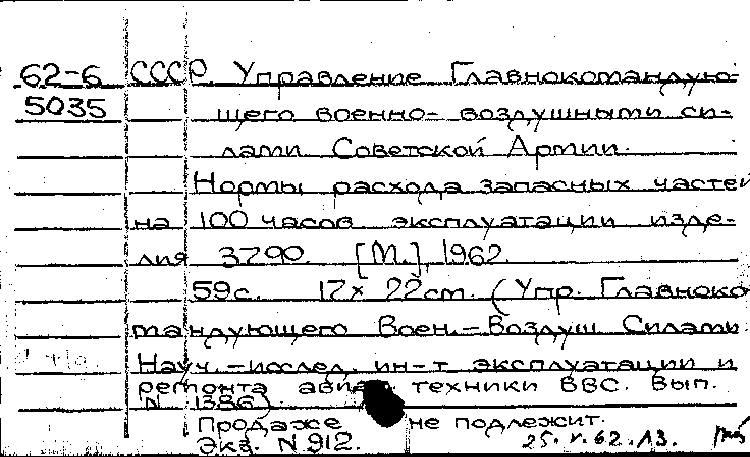 62-6 СССР. Управление Главнокомандую-
5035 щего военно-воздушными си-
лами Советской Армии.
Нормы расхода запасных частей
на 100 часов эксплуатации изде-
лия 3790. [М.], 1962.
59с. 17х22cm. (Упр. Главноко
мандующего Воен.-Воздуш Силами.
Науч.-исслед. ин-т эксплуатации и
ремонта авиац. техники ВВС. Вып.
N 1386).
Продаже не подлежит.
Экз. N 912. 25.V.62.